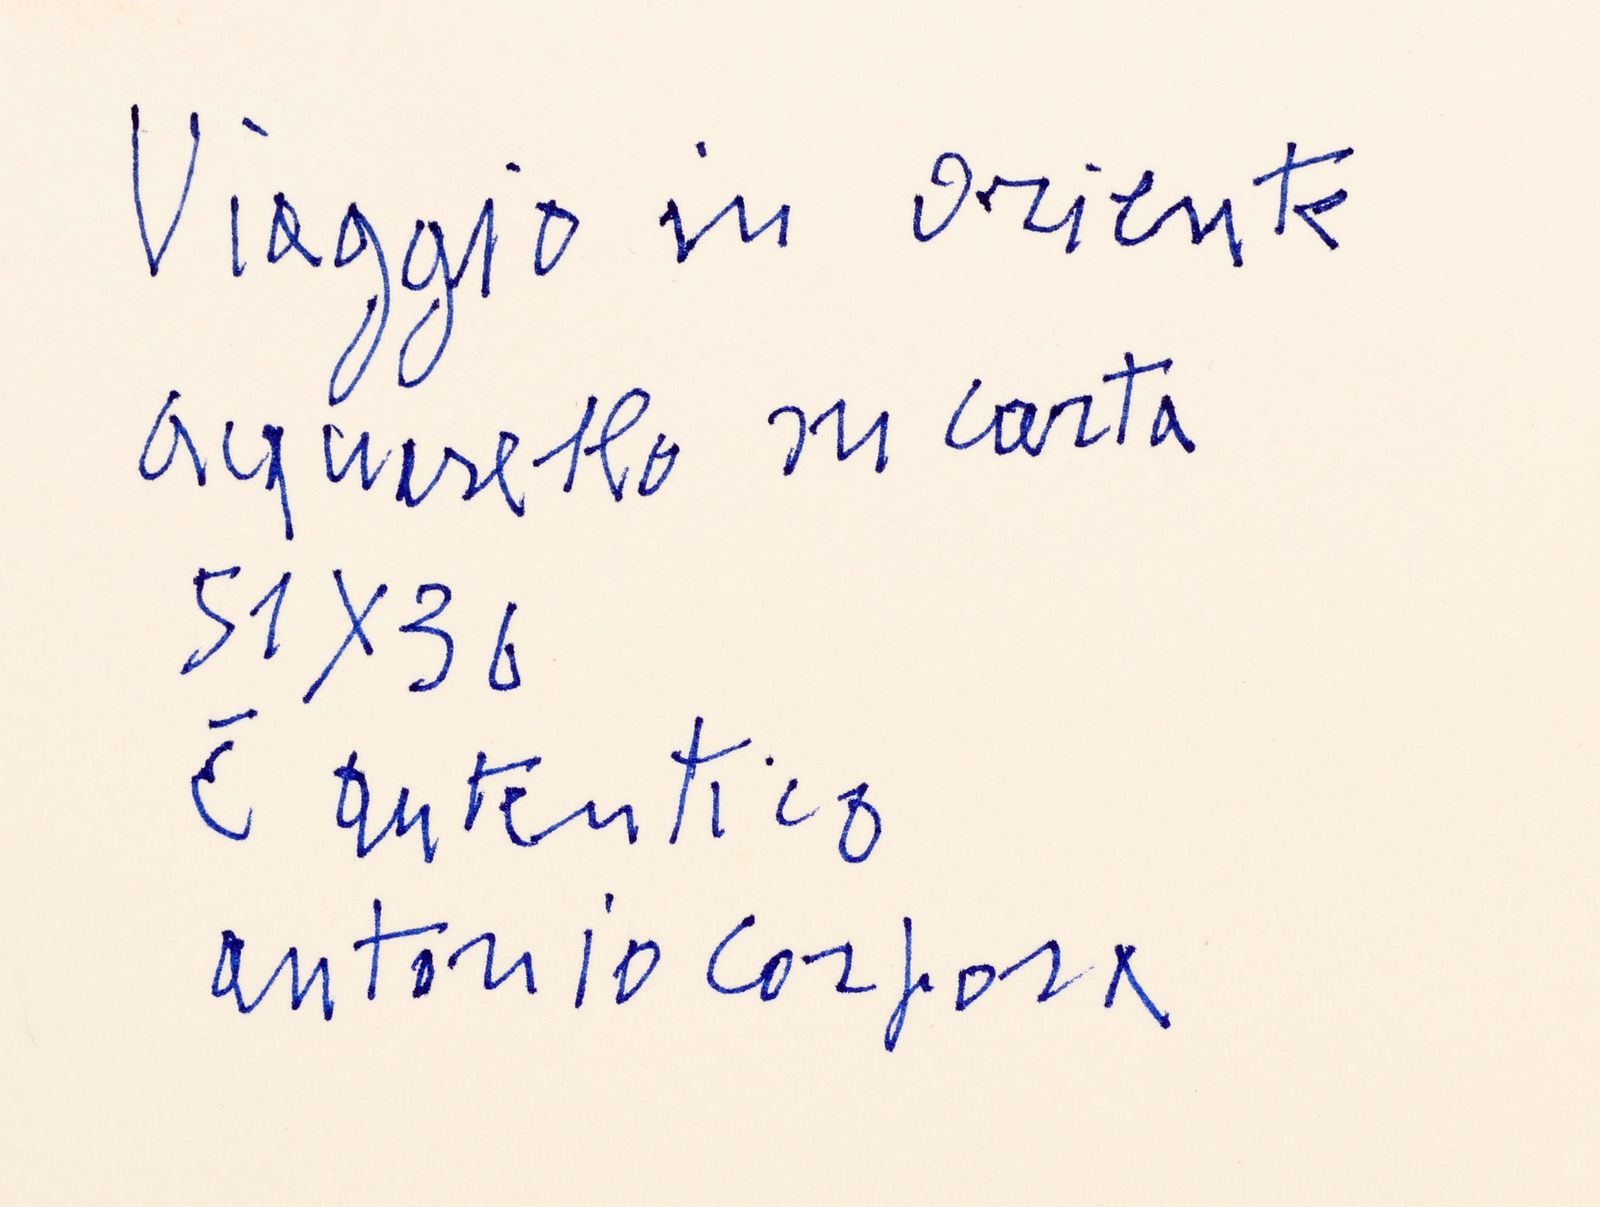 Viaggio in oriente
acquarello su carta
51X36
È autentico
antonio corpora